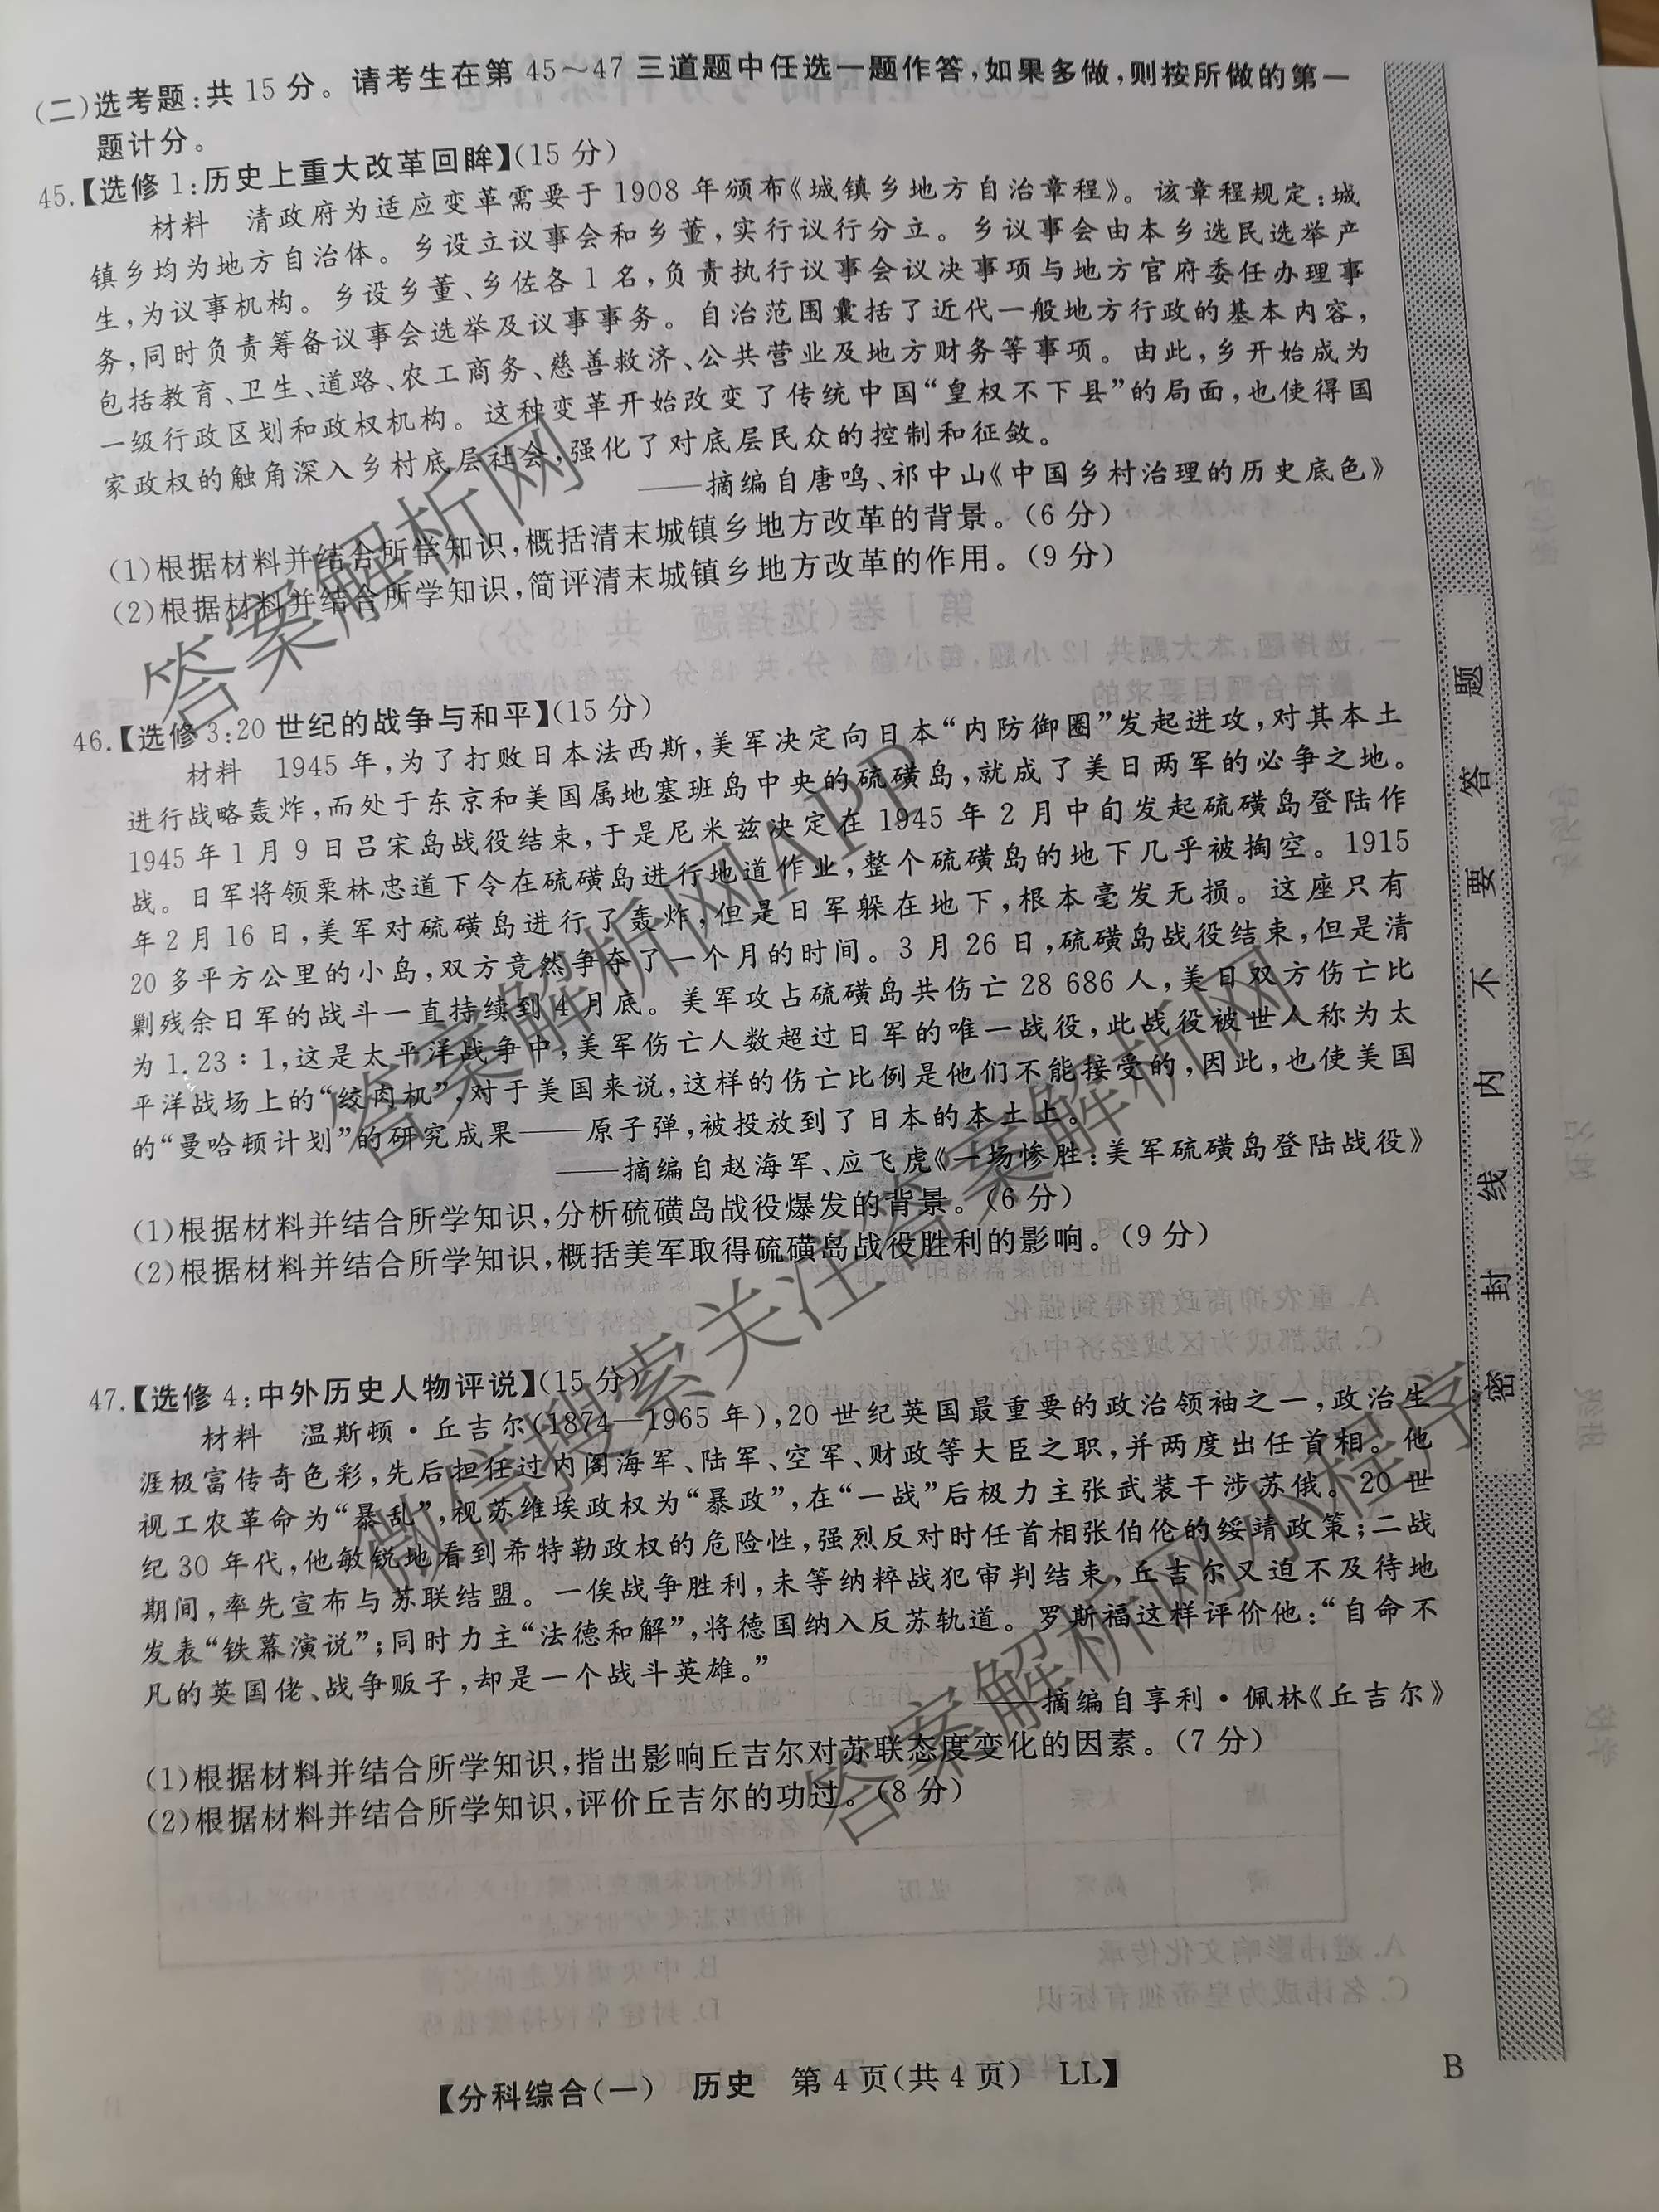 (二)选考题:共15分。请考生在第45～47三道题中任选一题作答,如果多做,则按所做的第一
题计分。
45.【选修1:历史上重大改革回眸】(15分)
材料 清政府为适应变革需要于1908年颁布《城镇乡地方自治章程》。该章程规定:城
镇乡均为地方自治体。乡设立议事会和乡董,实行议行分立。乡议事会由本乡选民选举产
生,为议事机构。乡设乡董、乡佐各1名,负责执行议事会议决事项与地方官府委任办理事
务,同时负责筹备议事会选举及议事事务。自治范围囊括了近代一般地方行政的基本内容,
包括教育、卫生、道路、农工商务、慈善救济、公共营业及地方财务等事项。由此,乡开始成为
一级行政区划和政权机构。这种变革开始改变了传统中国“皇权不下县”的局面,也使得国
家政权的触角深入乡村底层社会,强化了对底层民众的控制和征敛。
——摘编自唐鸣、祁中山《中国乡村治理的历史底色》
(1)根据材料并结合所学知识,概括清末城镇乡地方改革的背景。(6分)
(2)根据材料并结合所学知识,简评清末城镇乡地方改革的作用。(9分)
46.【选修3:20世纪的战争与和平】(15分)
材料 1945年,为了打败日本法西斯,美军决定向日本“内防御圈”发起进攻,对其本土
进行战略轰炸,而处于东京和美国属地塞班岛中央的硫磺岛,就成了美日两军的必争之地。
1945年1月9日吕宋岛战役结束,于是尼米兹决定在1945年2月中旬发起硫磺岛登陆作
战。日军将领栗林忠道下令在硫磺岛进行地道作业,整个硫磺岛的地下几乎被掏空。1915
年2月16日,美军对硫磺岛进行了轰炸,但是日军躲在地下,根本毫发无损。这座只有
20多平方公里的小岛,双方竟然争夺了一个月的时间。3月26日,硫磺岛战役结束,但是清
剿残余日军的战斗一直持续到4月底。美军攻占硫磺岛共伤亡28 686人,美日双方伤亡比
为1.23∶1,这是太平洋战争中,美军伤亡人数超过日军的唯一战役,此战役被世人称为太
平洋战场上的“绞肉机”,对于美国来说,这样的伤亡比例是他们不能接受的,因此,也使美国
的“曼哈顿计划”的研究成果——原子弹,被投放到了日本的本土上。
——摘编自赵海军、应飞虎《一场惨胜:美军硫磺岛登陆战役》
(1)根据材料并结合所学知识,分析硫磺岛战役爆发的背景。(6分)
(2)根据材料并结合所学知识,概括美军取得硫磺岛战役胜利的影响。(9分)
47.【选修4:中外历史人物评说】(15分)
材料 温斯顿·丘吉尔(1874—1965年),20世纪英国最重要的政治领袖之一,政治生
涯极富传奇色彩,先后担任过内阁海军、陆军、空军、财政等大臣之职,并两度出任首相。他
视工农革命为“暴乱”,视苏维埃政权为“暴政”,在“一战”后极力主张武装干涉苏俄。20世
纪30年代,他敏锐地看到希特勒政权的危险性,强烈反对时任首相张伯伦的绥靖政策;二战
期间,率先宣布与苏联结盟。一俟战争胜利,未等纳粹战犯审判结束,丘吉尔又迫不及待地
发表“铁幕演说”;同时力主“法德和解”,将德国纳入反苏轨道。罗斯福这样评价他:“自命不
凡的英国佬、战争贩子,却是一个战斗英雄。”
——摘编自享利·佩林《丘吉尔》
(1)根据材料并结合所学知识,指出影响丘吉尔对苏联态度变化的因素。(7分)
(2)根据材料并结合所学知识,评价丘吉尔的功过。(8分)
【分科综合(一) 历史 第4页(共4页) LL】
B
密封线内不要答题
答案解析网
答案解析网APP
微信搜索关注答案解析网
答案解析网小程序